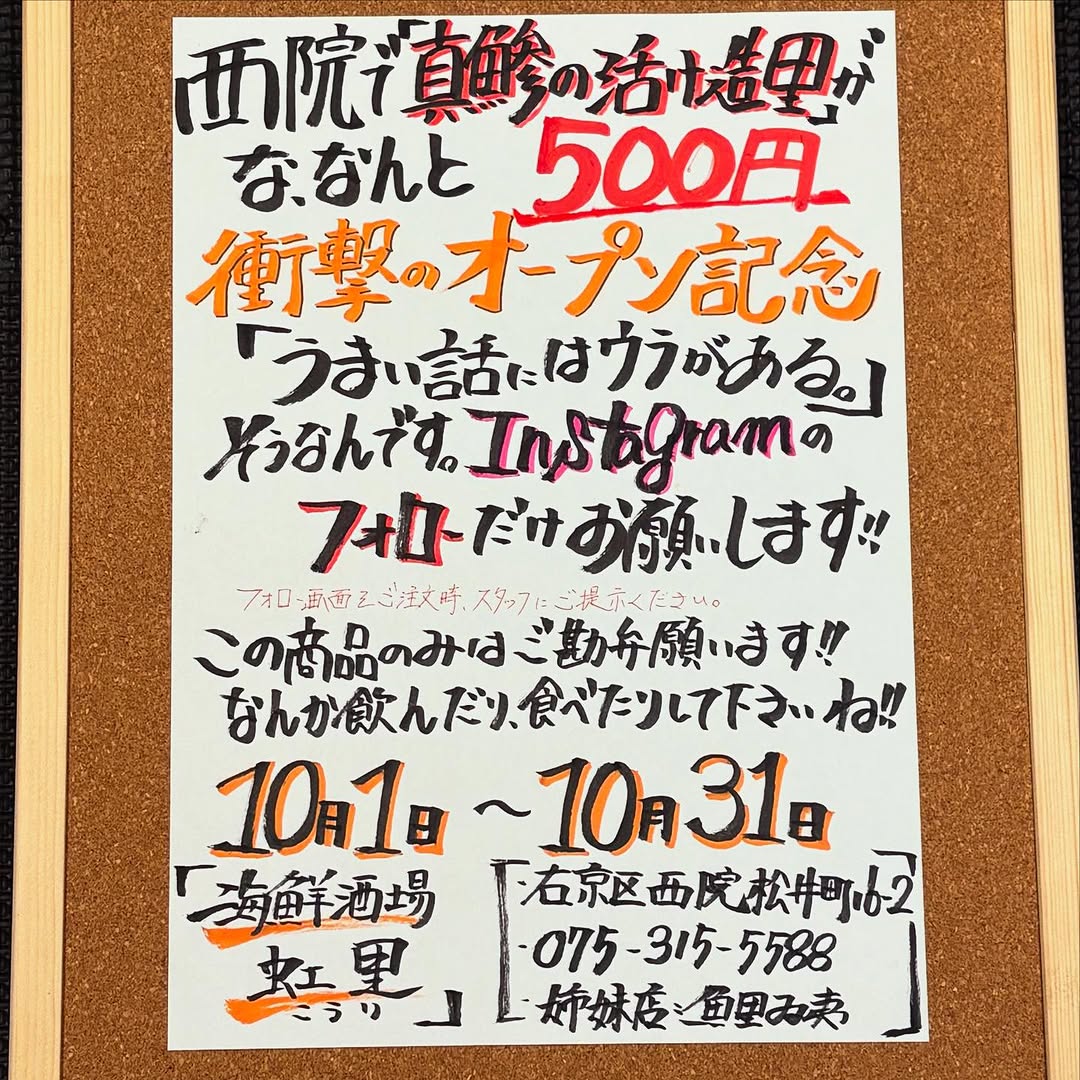 西院で「真鯵の活け造里」が
な、なんと 500円
衝撃のオープン記念
「うまい話にはウラがある。」
そうなんです。Instagramの
フォローだけお願いします!!
フォロー画面をご注文時、スタッフにご提示ください。
この商品のみはご勘弁願います!!
なんか飲んだり、食べたりして下さいね!!
10月1日 〜 10月31日
「海鮮酒場
虹里
こうり」
・右京区西院松井町16-2
・075-315-5588
・姉妹店:魚里ゐ夷